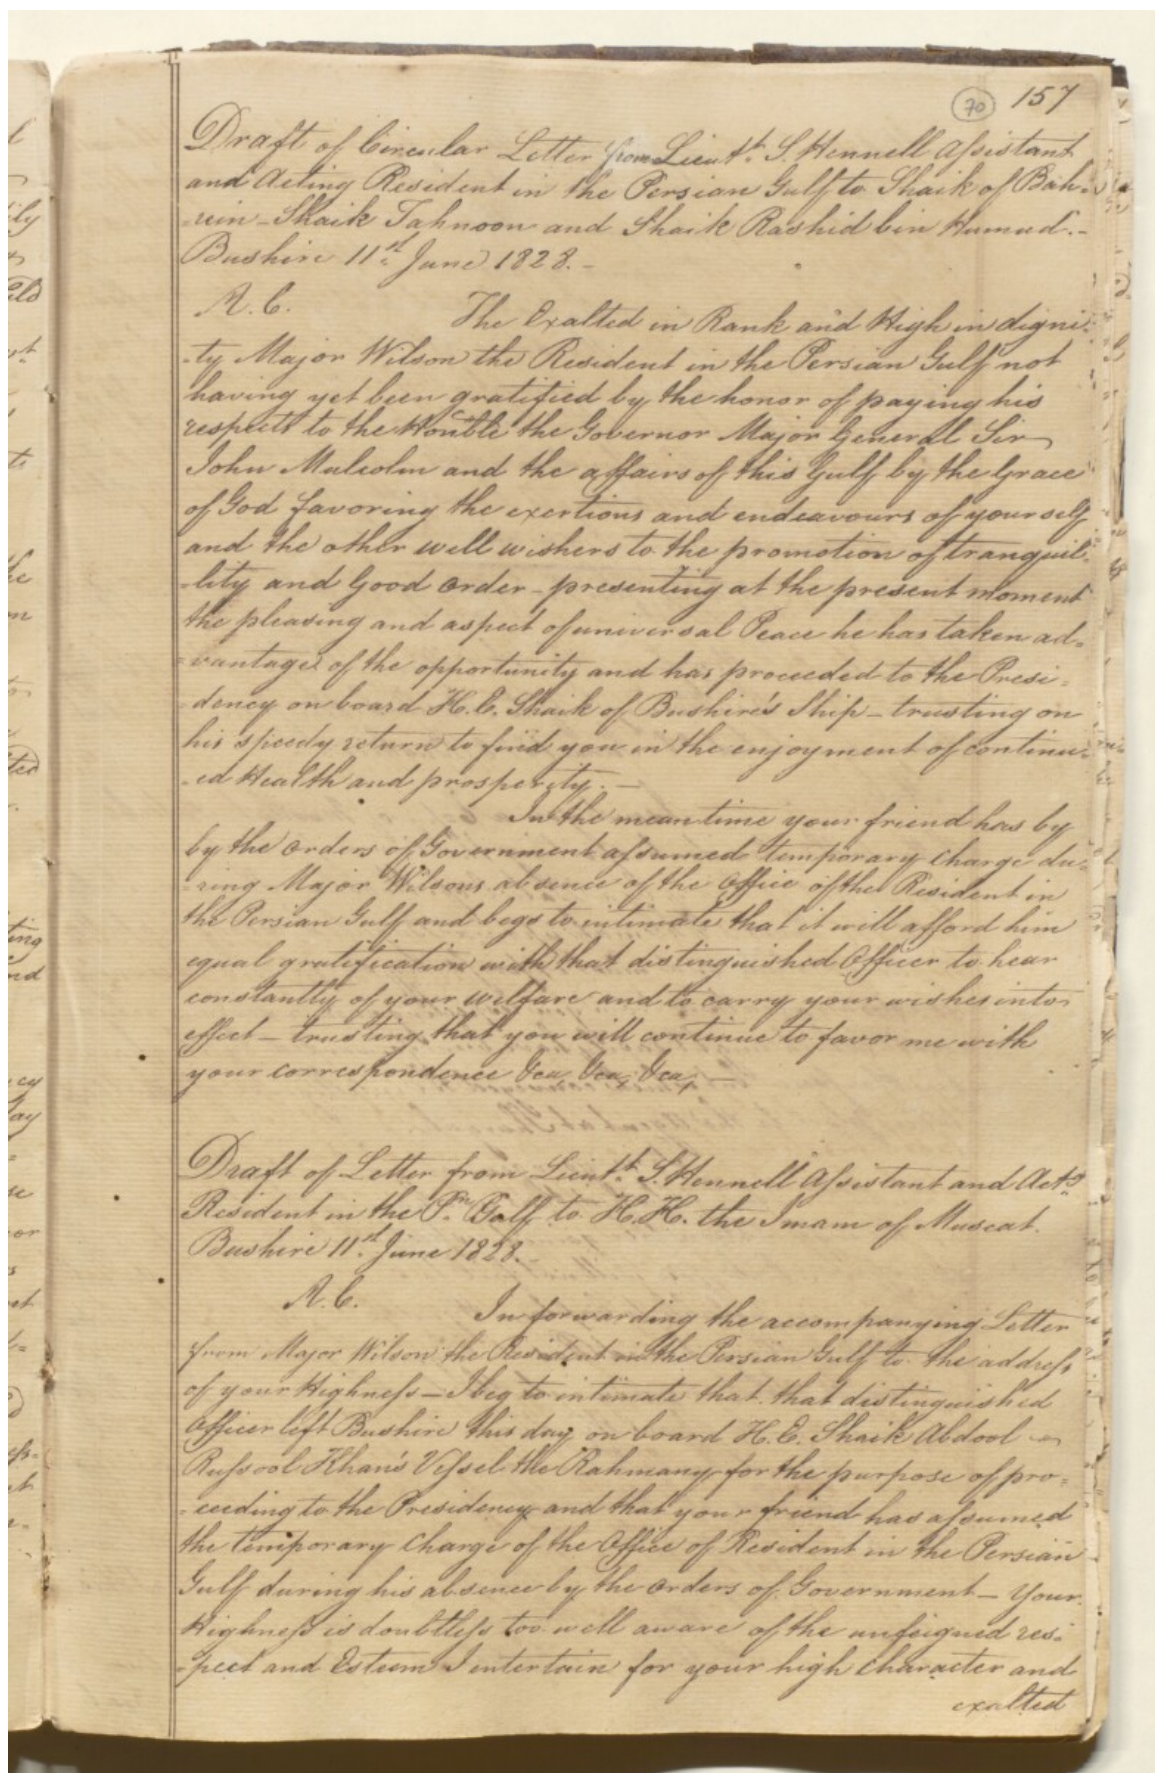 70 157
Draft of Circular Letter from Lieut.t S. Hennell Assistant
and Acting Resident in the Persian Gulf to Shaik of Bah-
-rein - Shaik Tahnoon and Shaik Rashid bin Humud. -
Bushire 11st June 1828. -
A. C. The Exalted in Rank and High in digni-
-ty Major Wilson the Resident in the Persian Gulf not
having yet been gratified by the honor of paying his
respects to the Honble the Governor Major General Sir
John Malcolm and the affairs of this Gulf by the Grace
of God favoring the exertions and endeavours of yourself
and the other well wishers to the promotion of tranquil-
-lity and Good order - presenting at the present moment
the pleasing and aspect of universal Peace he has taken ad-
-vantage of the opportunity and has proceeded to the Presi-
-dency on board H. E. Shaik of Bushire's Ship - trusting on
his speedy return to find you in the enjoyment of continu-
-ed Health and prosperity. -
In the mean time your friend has by
by the orders of Government assumed temporary charge du-
-ring Major Wilsons absence of the Office of the Resident in
the Persian Gulf and begs to intimate that it will afford him
equal gratification with that distinguished Officer to hear
constantly of your welfare and to carry your wishes into
effect - trusting that you will continue to favor me with
your correspondence &ca, &ca, &ca, -
Draft of Letter from Lieut.t S. Hennell Assistant and Actg
Resident in the Pn. Gulf to H. H. the Imam of Muscat.
Bushire 11st June 1828. -
A. C. In forwarding the accompanying Letter
from Major Wilson the Resident in the Persian Gulf to the address
of your Highness - I beg to intimate that that distinguished
Officer left Bushire this day on board H. E. Shaik Abdool
Russool Khan's Vessel the Rahmany for the purpose of pro-
-ceeding to the Presidency and that your friend has assumed
the temporary Charge of the Office of Resident in the Persian
Gulf during his absence by the orders of Government - Your
Highness is doubtless too well aware of the unfeigned res-
-pect and Esteem I entertain for your high character and
exalted